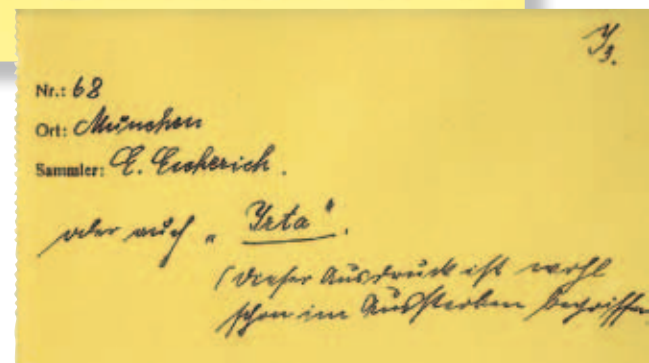 Y
3.
Nr.: 68
Ort: München
Sammler: E. Escherich.
oder auch „Irta".
(dieser Ausdruck ist wohl
schon im Aussterben begriffen